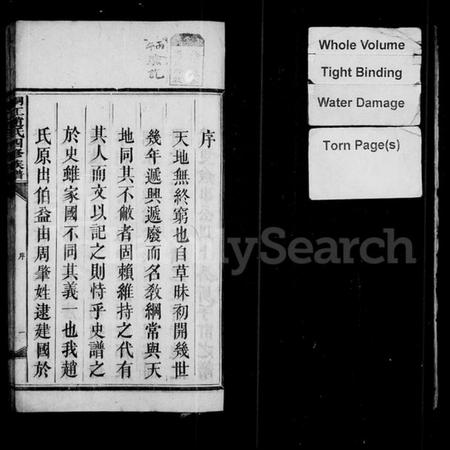 序
天地無終窮也自草昧初開幾世
幾年遞興遞廢而名教綱常與天
地同其不敝者固賴維持之代有
其人而文以記之則恃乎史譜之
於史雖家國不同其義一也我趙
氏原出伯益由周肇姓逮建國於
趙氏四修族譜
序
一
Whole Volume
Tight Binding
Water Damage
Torn Page(s)
lySearch